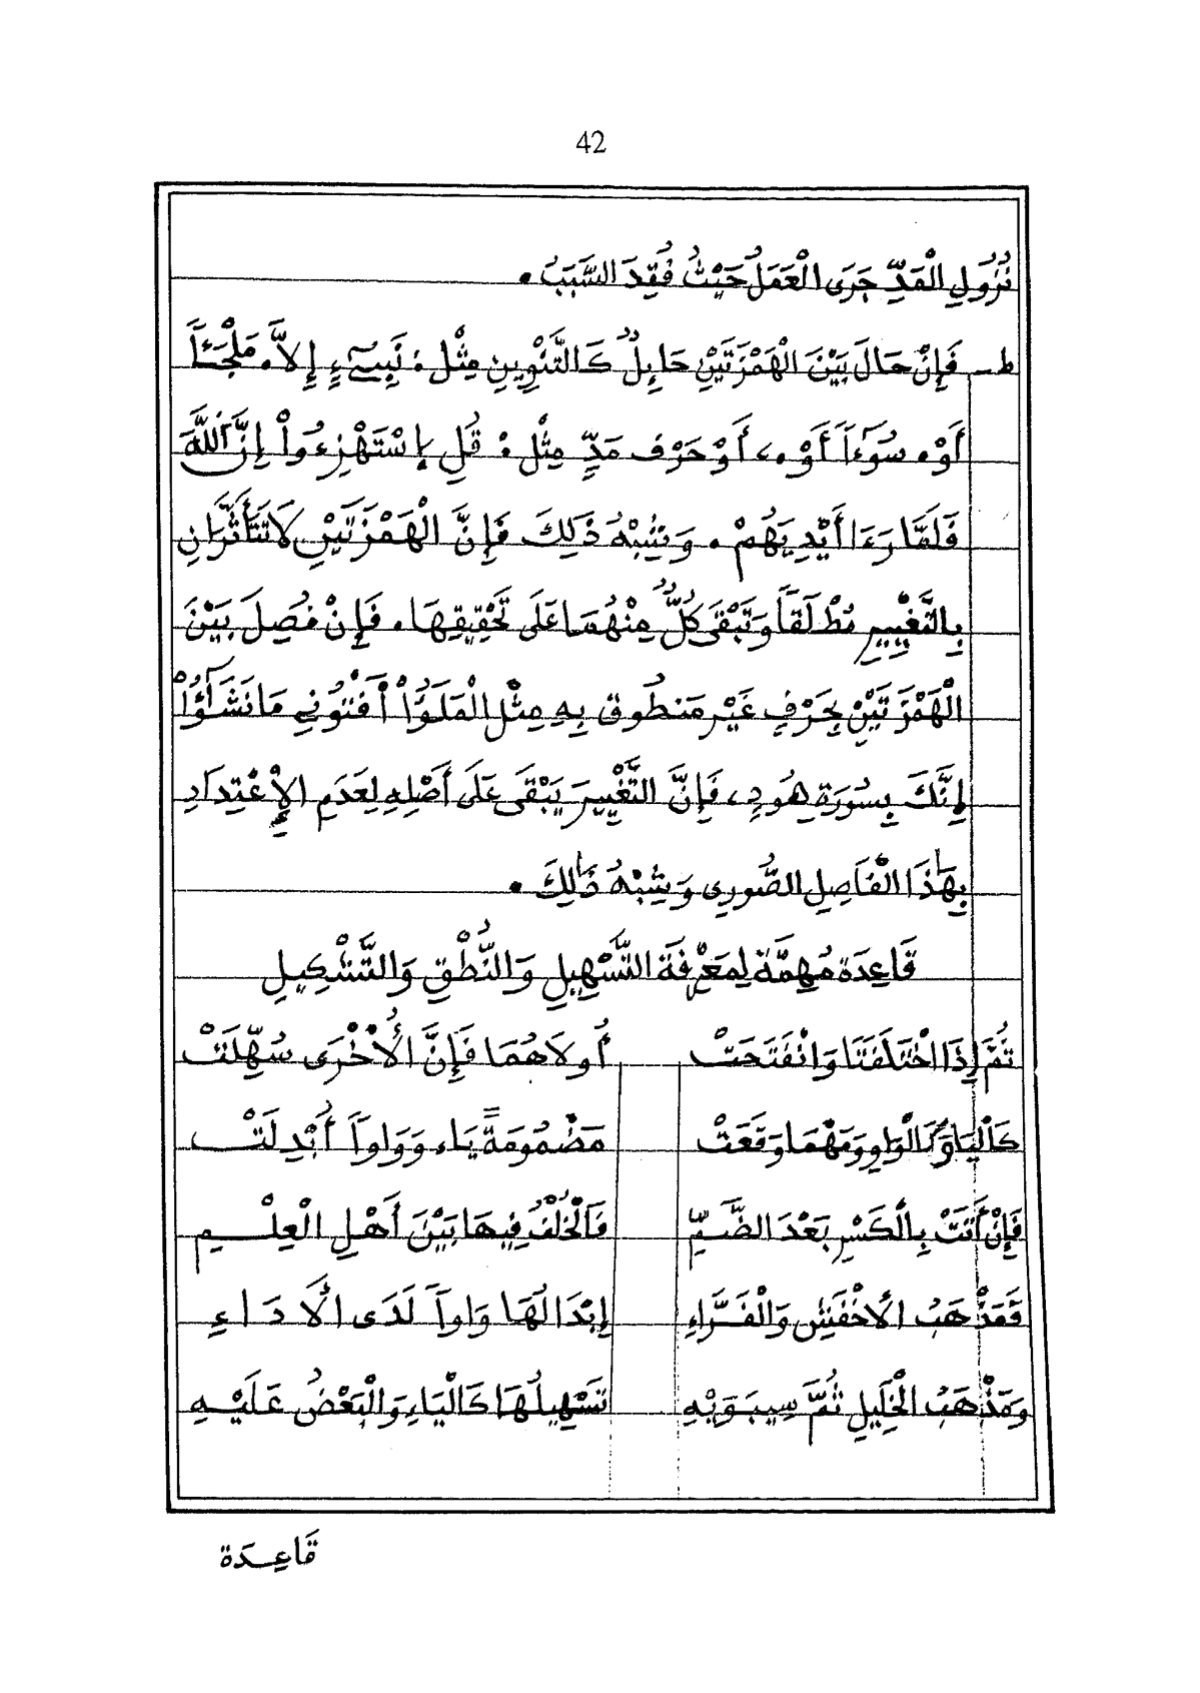 42
نُزُولِ الْمَدِّ جَرَى الْعَمَلُ حَيْثُ فُقِدَ السَّبَبُ.
ط - فَإِنْ حَالَ بَيْنَ الْهَمْزَتَيْنِ حَائِلٌ كَالتَّنْوِينِ مِثْل: نَبِيءٍ إِلاَّ. مَلْجَـًٔا
أَوْ. سُوٓءًا أَوْ.، أَوْ حَرْف مَدٍّ مِثْل: قُلِ اِسْتَهْزِءُوا إِنَّ اللَّهَ
فَلَمَّا رَءَا أَيْدِيَهُمْ. وَيُشْبِهُ ذَلِكَ فَإِنَّ الْهَمْزَتَيْنِ لاَ تَتَأَثَّرَانِ
بِالتَّغْيِيرِ مُطْلَقًا وَتَبْقَى كُلٌّ مِنْهُمَا عَلَى تَحْقِيقِهَا. فَإِنْ فُصِلَ بَيْنَ
الْهَمْزَتَيْنِ بِحَرْفٍ غَيْرِ مَنطُوق بِهِ مِثْل الْمَلَؤُا أَفْتُونِي مَا نَشَٰٓؤُا
إِنَّكَ بِسُورَةِ هُودٍ، فَإِنَّ التَّغْيِيرَ يَبْقَى عَلَى أَصْلِهِ لِعَدَمِ الإِعْتِدَادِ
بِهَٰذَا الْفَاصِلِ الصُّورِي وَيُشْبِهُ ذَٰلِكَ.
قَاعِدَة مُهِمَّة لِمَعْرِفَةِ التَّسْهِيلِ وَالنُّطْقِ وَالتَّشْكِيلِ
ثُمَّ إِذَا اخْتَلَفَتَا وَانْفَتَحَتْ أُولاَهُمَا فَإِنَّ الأُخْرَى سُهِّلَتْ
كَالْيَا وَكَالْوَاوِ وَمَهْمَا وَقَعَتْ مَضْمُومَةً يَاء وَوَاوًا أُبْدِلَتْ
فَإِنْ أَتَتْ بِالْكَسْرِ بَعْدَ الضَّمِّ فَالْخُلْفُ فِيهَا بَيْنَ أَهْلِ الْعِلْمِ
فَمَذْهَبُ الأَخْفَشِ وَالْفَرَّاءِ إِبْدَالُهَا وَاوًا لَدَى الأَدَاءِ
وَمَذْهَبُ الْخَلِيلِ ثُمَّ سِيبَوَيْهِ تَسْهِيلُهَا كَالْيَاءِ وَالْبَعْضُ عَلَيْهِ
قَاعِدَة